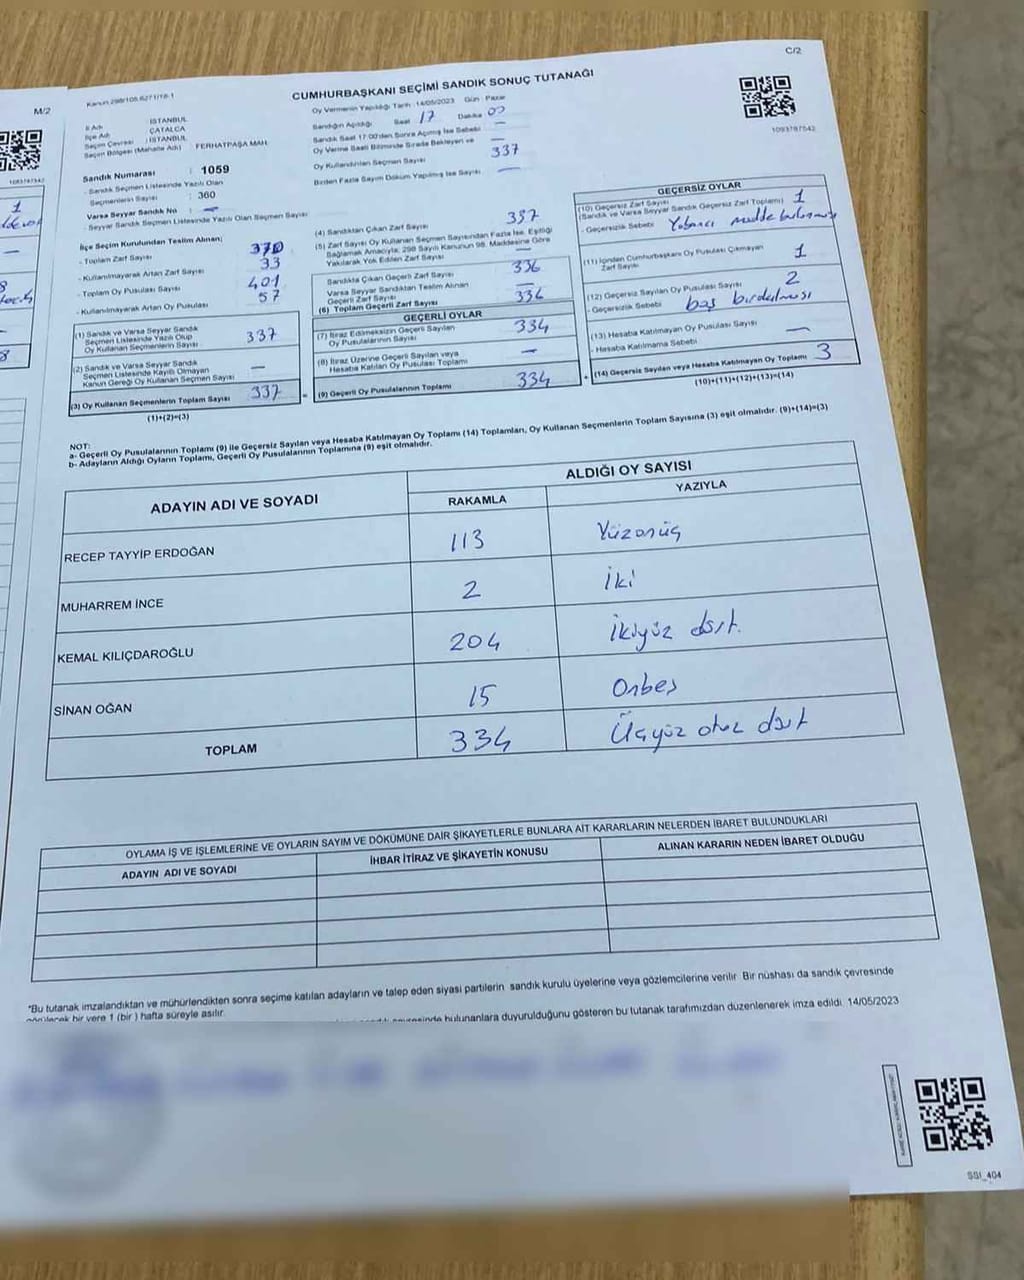 C/2
M/2
Kanun 298/105,6271/18-1
CUMHURBAŞKANI SEÇİMİ SANDIK SONUÇ TUTANAĞI
İl Adı : İSTANBUL
İlçe Adı : ÇATALCA
Seçim Çevresi : İSTANBUL
Seçim Bölgesi (Mahalle Adı) FERHATPAŞA MAH.
Sandık Numarası : 1059
- Sandık Seçmen Listesinde Yazılı Olan
Seçmenlerin Sayısı : 360
Varsa Seyyar Sandık No : —
- Seyyar Sandık Seçmen Listesinde Yazılı Olan Seçmen Sayısı
Oy Vermenin Yapıldığı Tarih :14/05/2023 Gün : Pazar
Sandığın Açıldığı Saat 17 Dakika 00
Sandık Saat 17:00'den Sonra Açılmış İse Sebebi —
Oy Verme Saati Bitiminde Sırada Bekleyen ve —
Oy Kullandırılan Seçmen Sayısı 337
Birden Fazla Sayım Döküm Yapılmış İse Sayısı —
1093787542
İlçe Seçim Kurulundan Teslim Alınan;
- Toplam Zarf Sayısı 370
- Kullanılmayarak Artan Zarf Sayısı 33
- Toplam Oy Pusulası Sayısı 401
- Kullanılmayarak Artan Oy Pusulası 57
(1) Sandık ve Varsa Seyyar Sandık
Seçmen Listesinde Yazılı Olup
Oy Kullanan Seçmenlerin Sayısı 337
(2) Sandık ve Varsa Seyyar Sandık
Seçmen Listesinde Kayıtlı Olmayan
Kanun Gereği Oy Kullanan Seçmen Sayısı —
(3) Oy Kullanan Seçmenlerin Toplam Sayısı 337
(1)+(2)=(3)
(4) Sandıktan Çıkan Zarf Sayısı 337
(5) Zarf Sayısı Oy Kullanan Seçmen Sayısından Fazla İse, Eşitliği
Sağlamak Amacıyla; 298 Sayılı Kanunun 98. Maddesine Göre
Yakılarak Yok Edilen Zarf Sayısı —
Sandıkta Çıkan Geçerli Zarf Sayısı 336
Varsa Seyyar Sandıktan Teslim Alınan
Geçerli Zarf Sayısı —
(6) Toplam Geçerli Zarf Sayısı 336
GEÇERLİ OYLAR
(7) İtiraz Edilmeksizin Geçerli Sayılan
Oy Pusulalarının Sayısı 334
(8) İtiraz Üzerine Geçerli Sayılan veya
Hesaba Katılan Oy Pusulası Toplamı —
(9) Geçerli Oy Pusulalarının Toplamı 334
GEÇERSİZ OYLAR
(10) Geçersiz Zarf Sayısı
(Sandık ve Varsa Seyyar Sandık Geçersiz Zarf Toplamı) 1
- Geçersizlik Sebebi Yabancı madde bulunması
(11) İçinden Cumhurbaşkanı Oy Pusulası Çıkmayan
Zarf Sayısı 1
(12) Geçersiz Sayılan Oy Pusulası Sayısı 2
- Geçersizlik Sebebi boş bırakılması
(13) Hesaba Katılmayan Oy Pusulası Sayısı —
- Hesaba Katılmama Sebebi
(14) Geçersiz Sayılan veya Hesaba Katılmayan Oy Toplamı 3
(10)+(11)+(12)+(13)=(14)
NOT:
a- Geçerli Oy Pusulalarının Toplamı (9) ile Geçersiz Sayılan veya Hesaba Katılmayan Oy Toplamı (14) Toplamları, Oy Kullanan Seçmenlerin Toplam Sayısına (3) eşit olmalıdır. (9)+(14)=(3)
b- Adayların Aldığı Oyların Toplamı, Geçerli Oy Pusulalarının Toplamına (9) eşit olmalıdır.
ADAYIN ADI VE SOYADI
ALDIĞI OY SAYISI
RAKAMLA YAZIYLA
RECEP TAYYİP ERDOĞAN 113 Yüzonüç
MUHARREM İNCE 2 İki
KEMAL KILIÇDAROĞLU 204 İkiyüz dört.
SİNAN OĞAN 15 Onbeş
TOPLAM 334 Üçyüz otuz dört
OYLAMA İŞ VE İŞLEMLERİNE VE OYLARIN SAYIM VE DÖKÜMÜNE DAİR ŞİKAYETLERLE BUNLARA AİT KARARLARIN NELERDEN İBARET BULUNDUKLARI
ADAYIN ADI VE SOYADI İHBAR İTİRAZ VE ŞİKAYETİN KONUSU ALINAN KARARIN NEDEN İBARET OLDUĞU
*Bu tutanak imzalandıktan ve mühürlendikten sonra seçime katılan adayların ve talep eden siyasi partilerin sandık kurulu üyelerine veya gözlemcilerine verilir. Bir nüshası da sandık çevresinde
görülecek bir yere 1 (bir ) hafta süreyle asılır.
bulunanlara duyurulduğunu gösteren bu tutanak tarafımızdan düzenlenerek imza edildi. 14/05/2023
SSİ_404